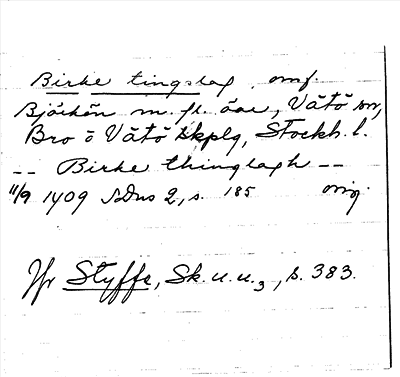 Birke tingslag, omf.
Björkön m. fl. öar, Vätö sn,
Bro o Vätö skplg, Stockh. l.
-- Birke thinglagh --
11/9 1409 SDns 2, s. 185 orig.
Jfr Styffe, Sk. u. u. 3, s. 383.